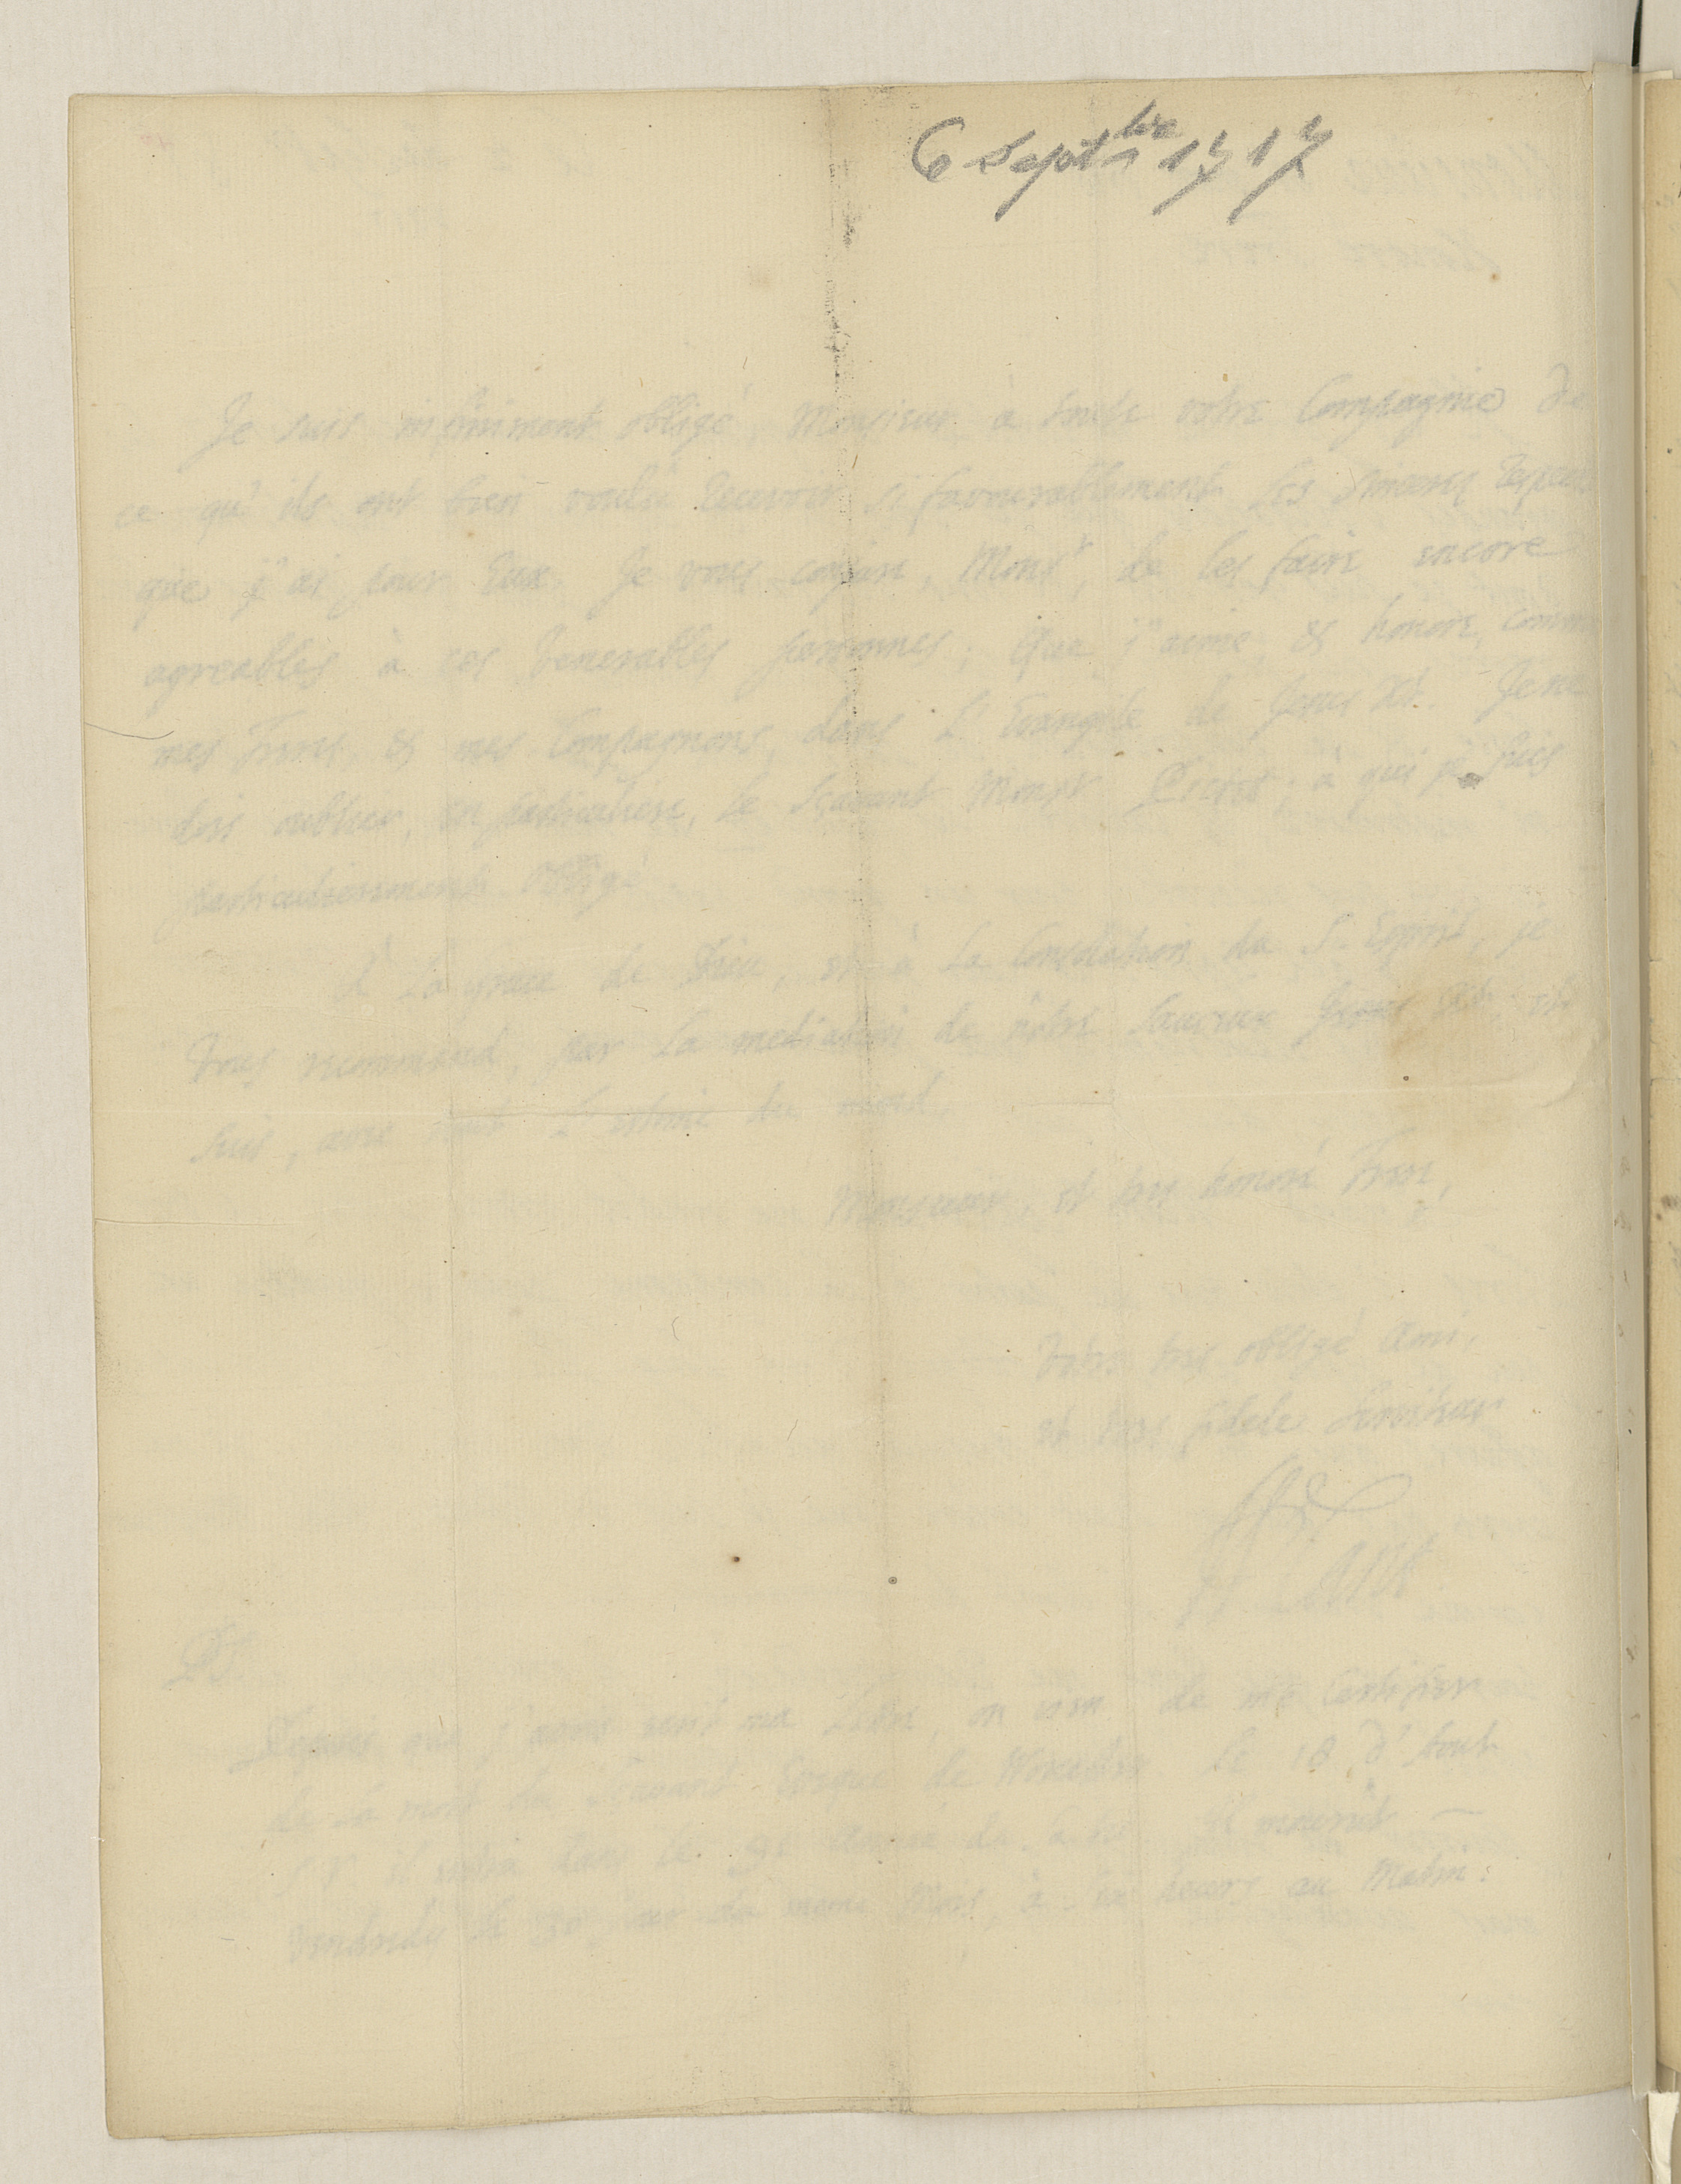 6 Septbre 1717
Je suis infiniment obligé, Monsieur, à toute votre Compagnie de
ce qu'ils ont bien voulu recevoir si favourablement les sinceres
que j'ai pour Eux. Je vous conjure, Monsr, de les faire encore
agreables à ces Venerables personnes; que j'aime, & honore, comme
mes Freres, & mes Compagnons, dans L'Evangile de Jesus Xt. Je ne
dois oublier, en particuliere, le Sçavant Monsr Pictet; à qui je suis
particulierement obligé.
À La grace de Dieu, et à La Consolation du St Esprit, je
Vous recommend, par La mediation de nôtre Sauveur Jesus Xt, et
suis, avec tout L'estime du mond,
Monsieur, et tres honoré Frere,
Votre tres obligé Ami,
et tres fidele Serviteur
W Cant
PS.
Depuis que j'avois ecrit ma Lettre, on vien de me certifier
de La mort du Sçavant Evêque de Worcester. Le 18. d'Aout
S.V. il entra dans le 91 Année de la Il mourût
Vendredy le 30 du meme Mois, à six heurs au Matin: